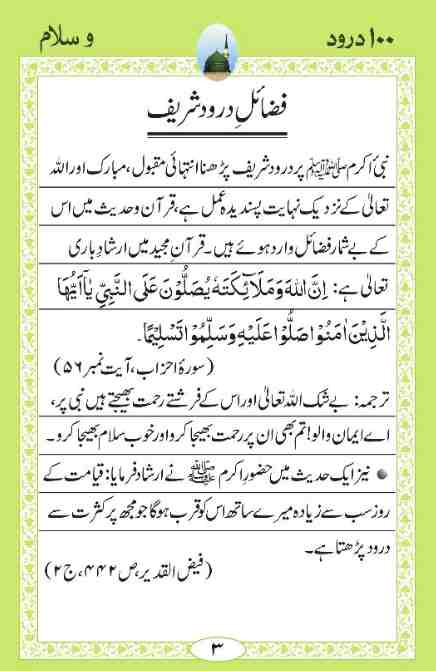 ۱۰۰ درود و سلام
فضائلِ درود شریف
نبیٔ اکرم ﷺ پر درود شریف پڑھنا انتہائی مقبول، مبارک اور اللہ
تعالیٰ کے نزدیک نہایت پسندیدہ عمل ہے، قرآن و حدیث میں اس
کے بے شمار فضائل وارد ہوئے ہیں۔ قرآنِ مجید میں ارشادِ باری
تعالیٰ ہے: اِنَّ اللهَ وَمَلَآئِكَتَهٗ يُصَلُّوْنَ عَلَى النَّبِيِّ يٰٓاَيُّهَا
الَّذِيْنَ اٰمَنُوْا صَلُّوْا عَلَيْهِ وَسَلِّمُوْا تَسْلِيْمًا۔
(سورۂ احزاب، آیت نمبر ۵۶)
ترجمہ: بے شک اللہ تعالیٰ اور اس کے فرشتے رحمت بھیجتے ہیں نبی پر،
اے ایمان والو! تم بھی ان پر رحمت بھیجا کرو اور خوب سلام بھیجا کرو۔
● نیز ایک حدیث میں حضورِ اکرم ﷺ نے ارشاد فرمایا: قیامت کے
روز سب سے زیادہ میرے ساتھ اس کو قرب ہوگا جو مجھ پر کثرت سے
درود پڑھتا ہے۔
(فیض القدیر، ص ۴۴۲، ج ۲)
۳